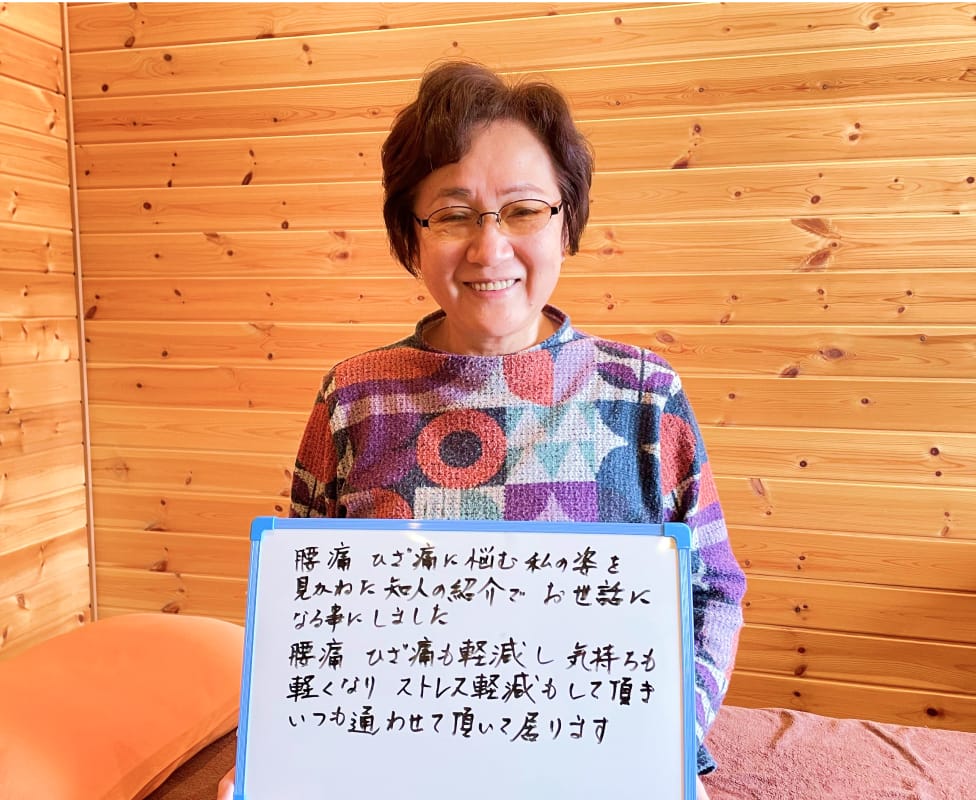 腰痛 ひざ痛に悩む私の姿を
見かねた知人の紹介で お世話に
なる事にしました
腰痛 ひざ痛も軽減し 気持ちも
軽くなり ストレス軽減もして頂き
いつも通わせて頂いて居ります